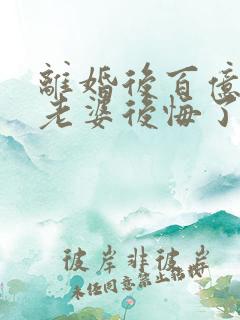 離婚後百億
老婆後悔了
彼岸非彼岸
未經同意禁止轉載